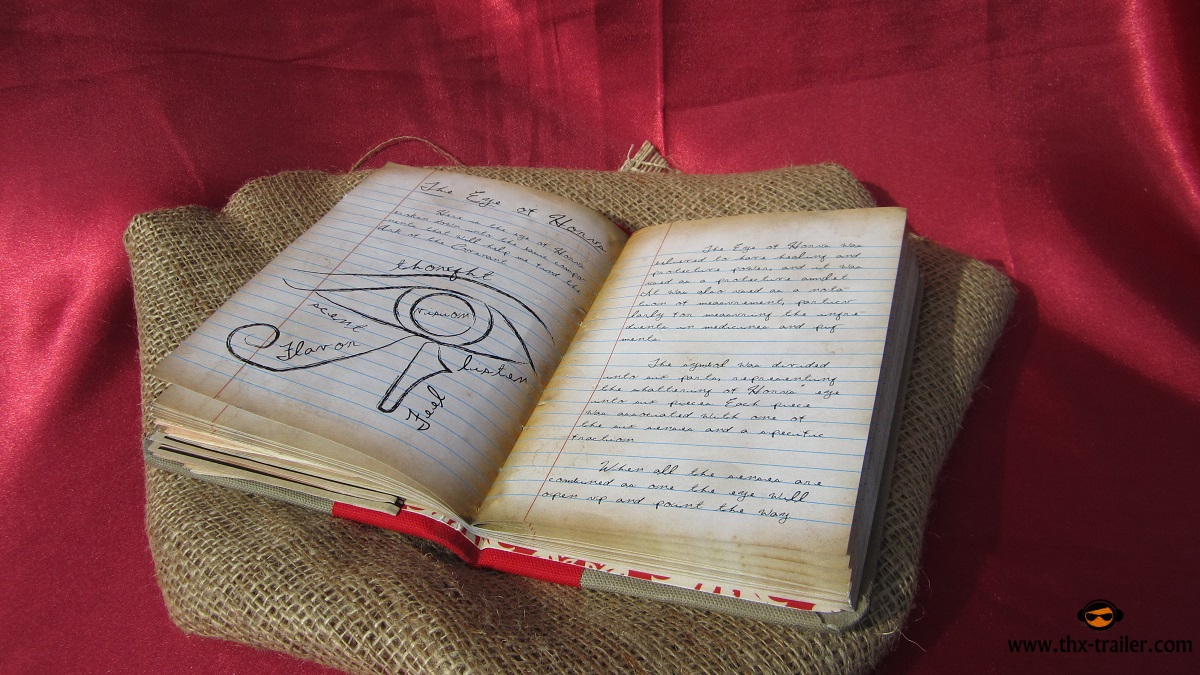 The Eye of Horus
Here is the eye of Horus
broken down into the same compo
nents that will help me find the
Ark of the Covenant
thought
vision
scent
Flavor
listen
Feel
The Eye of Horus was
believed to have healing and
protective power, and it was
used as a protective amulet
It was also used as a nota
tion of measurement, particu
larly for measuring the ingre
dients in medicines and pig
ments.
The symbol was divided
into six parts, representing
the shattering of Horus' eye
into six pieces. Each piece
was associated with one of
the six senses and a specific
fraction
When all the senses are
combined as one the eye will
open up and point the way
www.thx-trailer.com